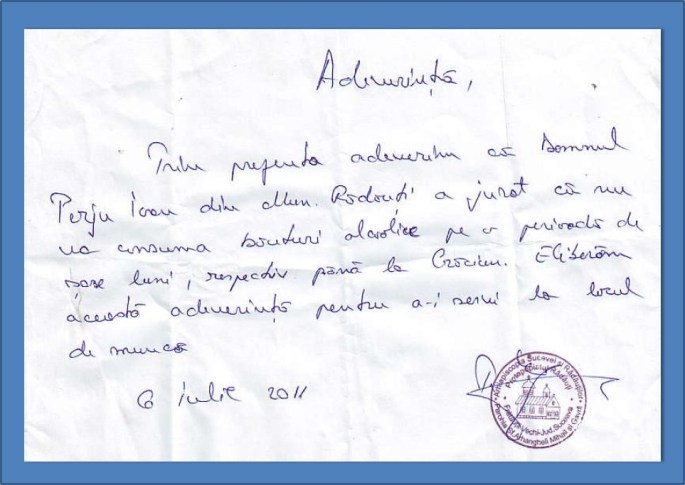 Adeverință,
Prin prezenta adeverim că domnul
Perju Ioan din Mun. Rădăuți a jurat că nu
va consuma băuturi alcoolice pe o perioadă de
șase luni, respectiv până la Crăciun. Eliberăm
această adeverință pentru a-i servi la locul
de muncă
6 iulie 2011
Arhiepiscopia Sucevei și Rădăuților
Protopopiatul Rădăuți
Jud. Suceava
Parohia Sf. Arhangheli Mihail și Gavril